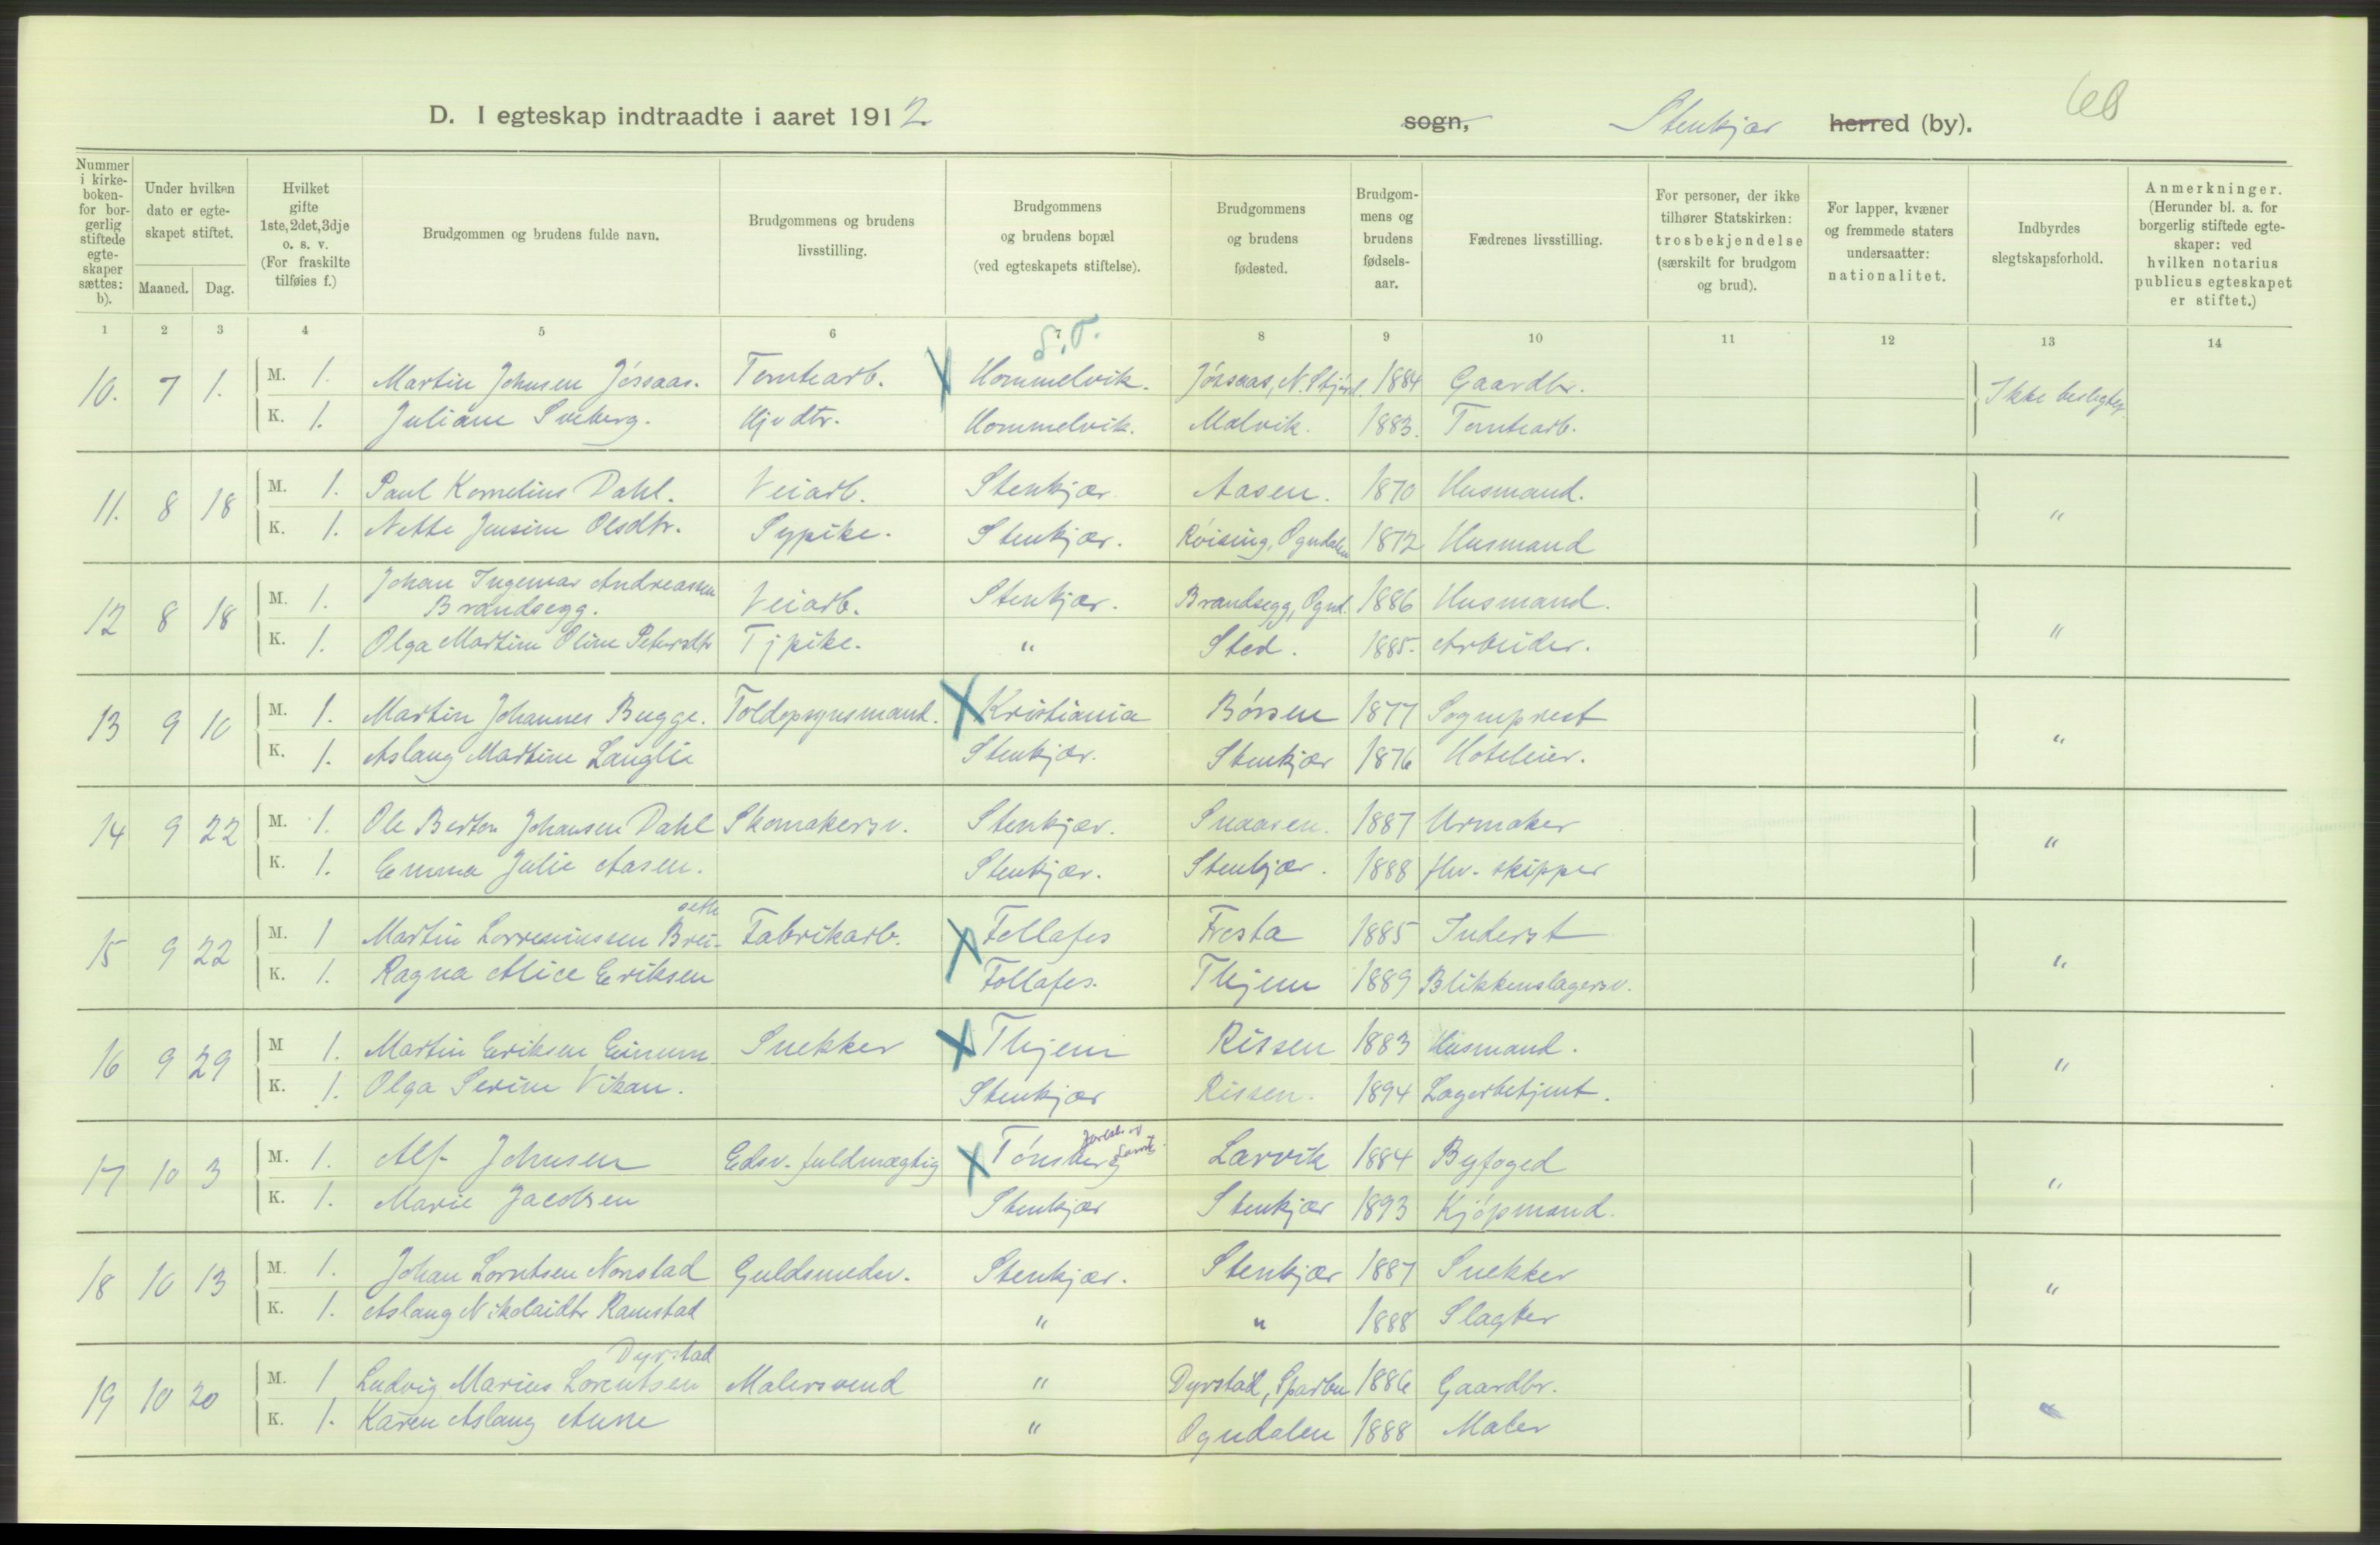 D. I egteskap indtraadte i aaret 1912
sogn, Stenkjær herred (by).
68
Nummer i kirkeboken- for borgerlig stiftede egteskaper sættes: b).
Under hvilken dato er egteskapet stiftet.
Maaned. Dag.
Hvilket gifte 1ste, 2det, 3dje o. s. v. (For fraskilte tilføies f.)
Brudgommen og brudens fulde navn.
Brudgommens og brudens livsstilling.
Brudgommens og brudens bopæl (ved egteskapets stiftelse).
Brudgommens og brudens fødested.
Brudgommens og brudens fødselsaar.
Fædrenes livsstilling.
For personer, der ikke tilhører Statskirken: trosbekjendelse (særskilt for brudgom og brud).
For lapper, kvæner og fremmede staters undersaatter: nationalitet.
Indbyrdes slegtskapsforhold.
Anmerkninger. (Herunder bl. a. for borgerlig stiftede egteskaper: ved hvilken notarius publicus egteskapet er stiftet.)
1 2 3 4 5 6 7 8 9 10 11 12 13 14
S.T.
10. 7 1. M. 1. Martin Johnsen Jøssaas. Tomtearb. X Hommelvik. Jøssaas, N. Stjørd. 1884 Gaardbr. Ikke beslegtet
K. 1. Juliane Sveberg. Hjvdtr. Hommelvik. Malvik. 1883. Tomtearb.
11. 8 18 M. 1. Paul Kornelius Dahl. Veiarb. Stenkjær Aasen. 1870 Husmand. "
K. 1. Nette Jensine Olsdtr. Sypike. Stenkjær. Røising, Ogndalen 1872 Husmand
12 8 18 M. 1. Johan Ingemar Andreassen Brandsegg. Veiarb. Stenkjær. Brandsegg, Ognd. 1886 Husmand. "
K. 1. Olga Martine Oline Petersdtr Tjpike. " Stod. 1885. Arbeider.
13 9 10 M. 1. Martin Johannes Bugge. Toldopsynsmand. X Kristiania Børsen 1877 Sogneprest "
K. 1. Aslaug Martine Langlie Stenkjær. Stenkjær 1876 Hoteleier.
14 9 22 M. 1. Ole Berton Johansen Dahl Skomakersv. Stenkjær. Snaasen. 1887 Urmaker "
K. 1. Emma Julie Aasen. Stenkjær. Stenkjær. 1888 fhv. skipper
15 9 22 M. 1 Martin Lorreninssen Breiseth Fabrikarb. X Follafos Frosta 1885 Inderst "
K. 1. Ragna Alice Eriksen Follafos. Thjem 1889 Blikkenslagersv.
16 9 29 M 1. Martin Eriksen Einum Snekker X Thjem Rissen 1883 Husmand. "
K. 1. Olga Serine Vikan. Stenkjær Rissen. 1894 Lagerbetjent.
17 10 3 M. 1. Alf Johnsen Edsv. fuldmægtig X Tønsberg Larvik 1884 Byfoged "
K. 1. Marie Jacobsen Stenkjær Stenkjær 1893 Kjøpmand.
18 10 13 M. 1. Johan Lorntsen Nonstad Guldsmedsv. Stenkjær. Stenkjær 1887 Snekker "
K. 1. Aslaug Nikolaidtr Ramstad " " 1888 Slagter
19 10 20 M. 1 Ludvig Marius Lorentsen Dyrstad Malersvend " Dyrstad, Sparbu 1886 Gaardbr. "
K. 1. Karen Aslaug Aune " Ogndalen 1888 Maler